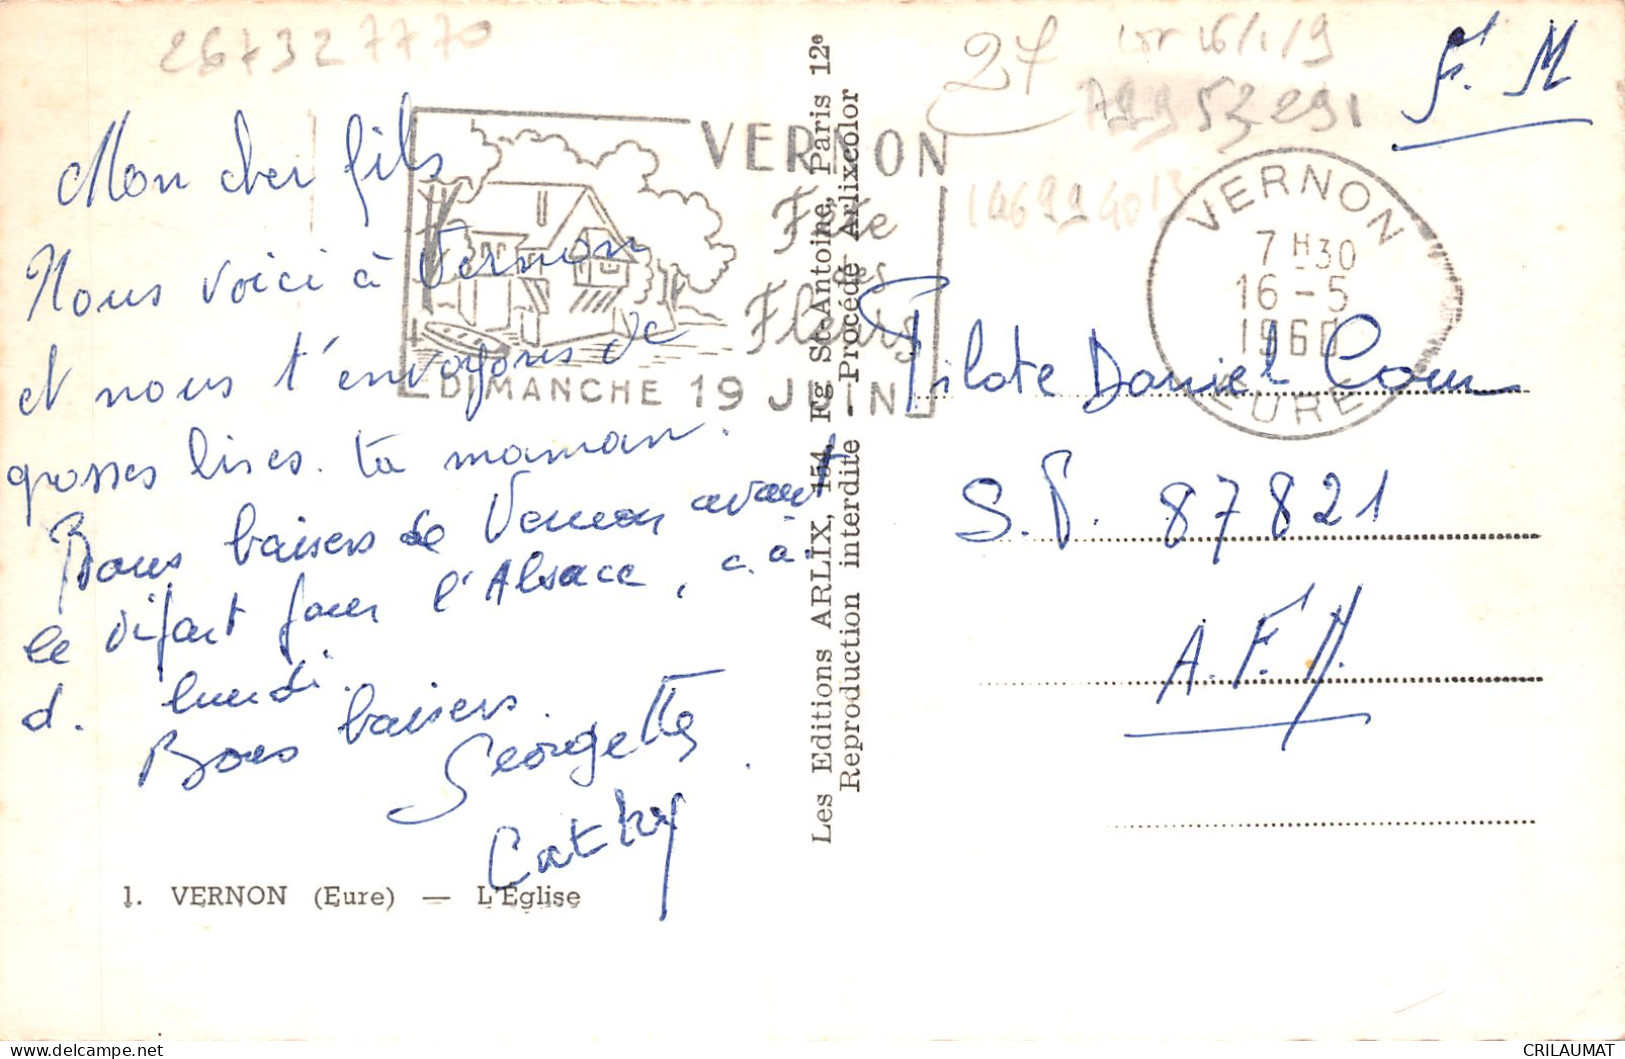 267327770
27
F. M
VERNON
Fête
des
Fleurs
DIMANCHE 19 JUIN
VERNON
7 H30
16 - 5
1960
EURE
Mon cher fils
Nous voici à Vernon
et nous t'envoyons de
grosses bises. ta maman.
Bons baisers de Vernon avant
le départ pour l'Alsace, c.à.
d. lundi.
Bons baisers.
Georgette
Cathy
1. VERNON (Eure) — L'Eglise
Les Editions ARLIX, 154, Fg St-Antoine, Paris 12e
Reproduction interdite - Procédé Arlixcolor
Pilote Daniel
S.P. 87821
A.F.N.
CRILAUMAT